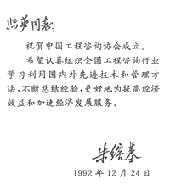 同志:
祝贺中国工程咨询协会成立。
希望认真组织全国工程咨询行业
学习利用国内外先进技术和管理方
法,不断总结经验,更好地为提高经济
效益和加速经济发展服务。
1992年12月24日